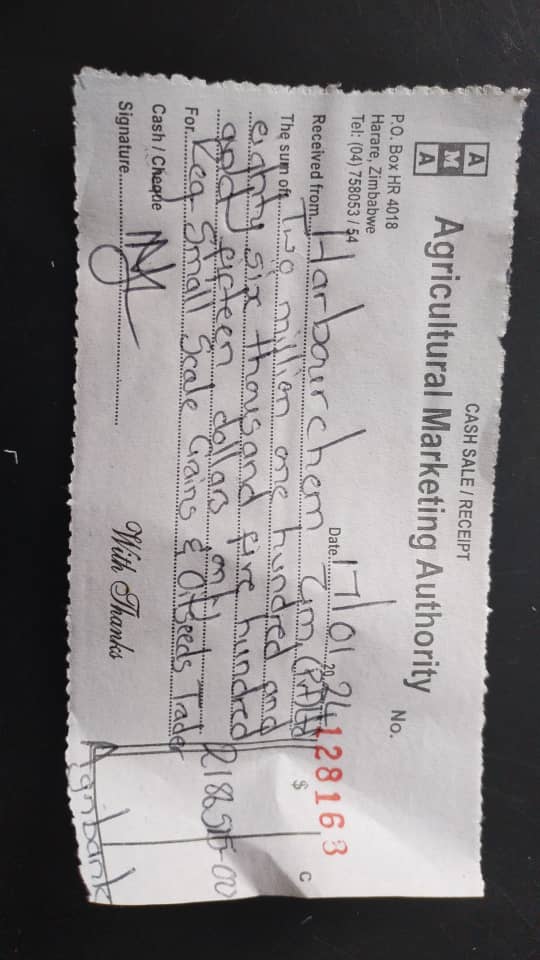 CASH SALE / RECEIPT
A M A
Agricultural Marketing Authority
P.O. Box HR 4018
Harare, Zimbabwe
Tel: (04) 758053 / 54
No. 128163
Date 17/01 2024
Received from Harbourchem Zim (Pvt) Ltd
$ C
The sum of Two million one hundred and
eighty six thousand five hundred
and fifteen dollars only
2186515-00
For Reg Small Scale Grains & Oilseeds Trader
Cash / Cheque
Agribank
Signature
With Thanks